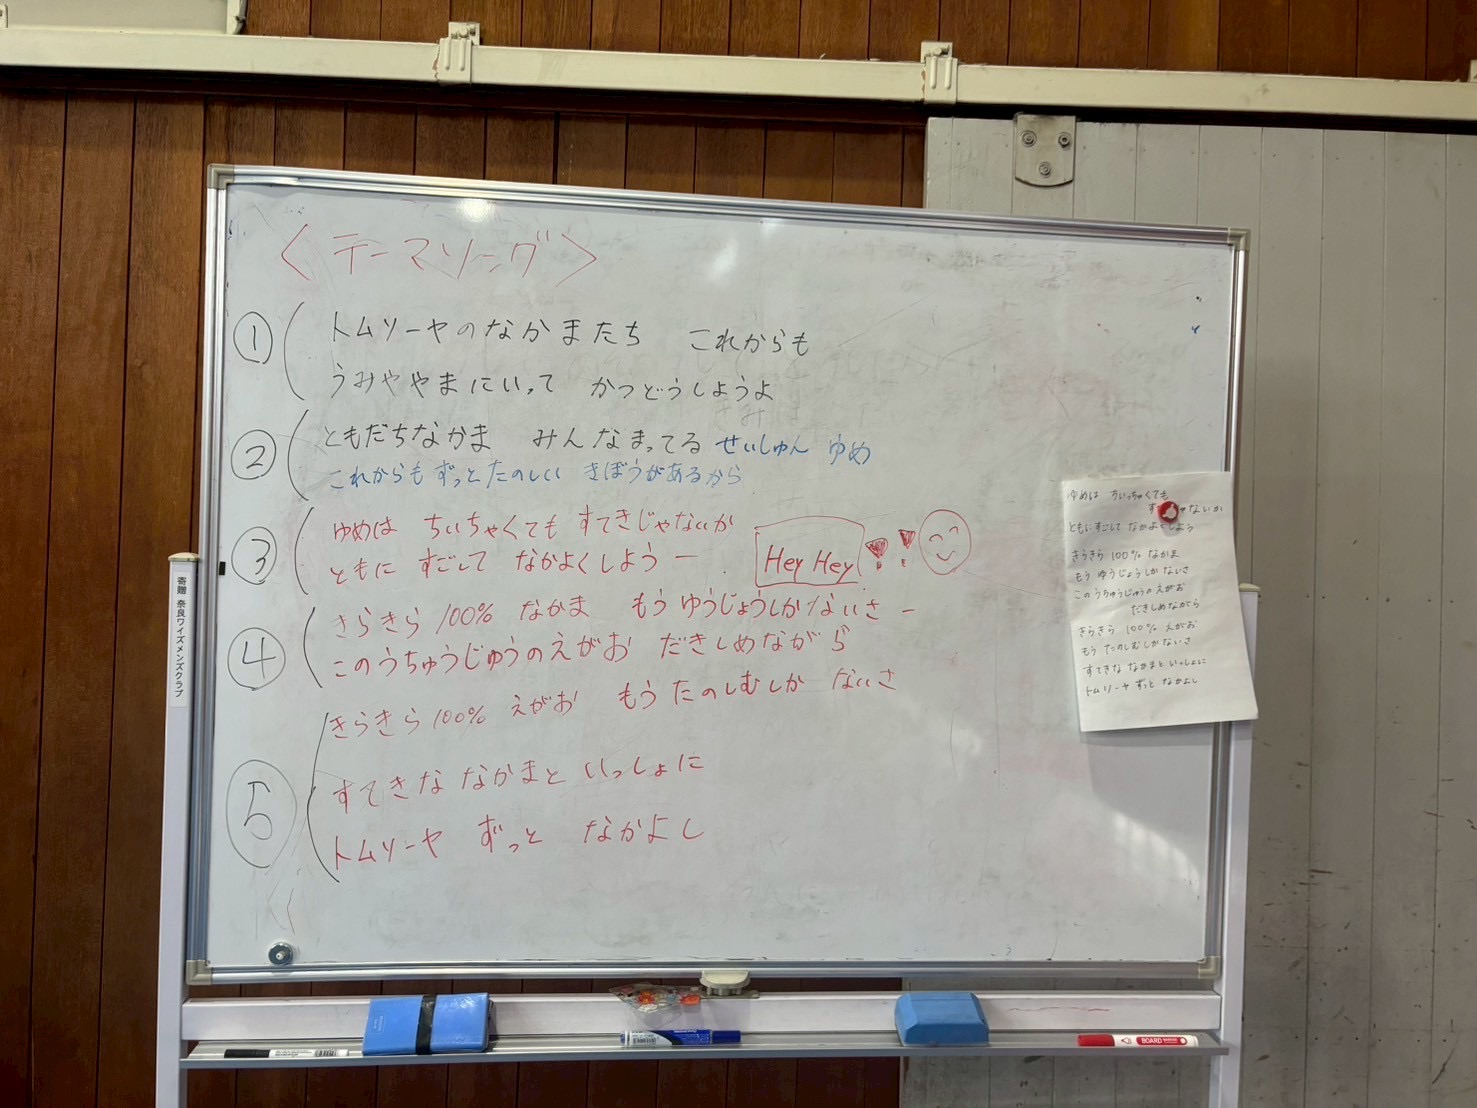 〈テーマソング〉
① トムソーヤのなかまたち これからも
うみややまにいって かつどうしようよ
② ともだちなかま みんなまってる せいしゅん ゆめ
これからもずっとたのしい きぼうがあるから
③ ゆめは ちいちゃくても すてきじゃないか
ともに すごして なかよくしようー Hey Hey!!
④ きらきら 100% なかま もう ゆうじょうしかないさー
このうちゅうじゅうのえがお だきしめながら
⑤ きらきら 100% えがお もう たのしむしか ないさ
すてきな なかまと いっしょに
トムソーヤ ずっと なかよし
ゆめは ちいっちゃくても
ないか
ともにすごして なかよくしよう
きらきら 100% なかま
もう ゆうじょうしか ないさ
このうちゅうじゅうのえがお
だきしめながら
きらきら 100% えがお
もう たのしむしかないさ
すてきな なかまと いっしょに
トムソーヤ ずっと なかよし
寄贈 奈良ワイズメンズクラブ
BOARD